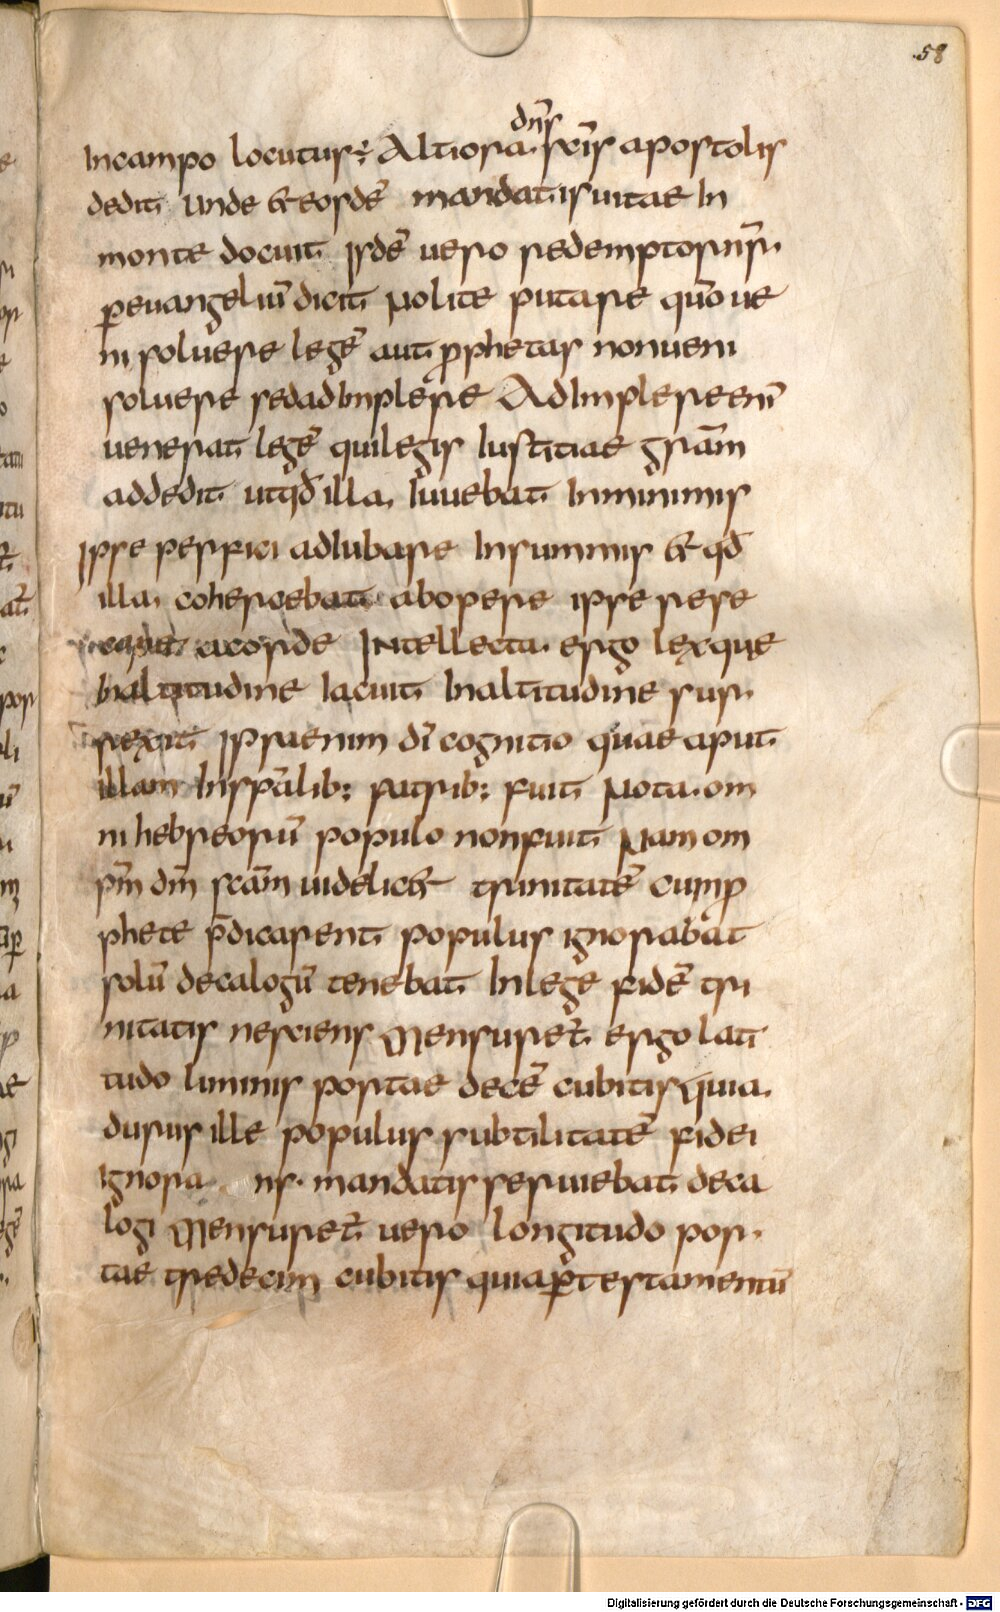 58
dn̄s
Incampo locutus÷ Altiora. sc̄is apostolis
dedit unde & eosdē mandatis uitae In
monte docuit Isdē uero redemptor nr̄.
ꝑ euangeliū dicit Nolite putare qūo ue
ni soluere legē aut ꝓphetas non ueni
soluere sed adImplere AdImplere enī
uenerat legē qui legis Iustitiae gr̄am
addedit ut qd̄ illa Iuuebat In minimis
Ipse perfici adIubare In summis & qd̄
illa cohercebat ab opere ipse rese
caret a corde Intellecta ergo lex que
In altitudine Iacuit In altitudine sur
rexit Ipsa enim dī cognitio quae aput
illam In sp̄alib; patrib; fuit Nota om
ni hebreorū populo non fuit Nam om
pm̄ dm̄ sc̄am uidelic& trinitatē cum ꝓ
phete p̄dicarent populus ignorabat
solū decalogū tenebat In lege fidē tri
nitatis nesciens Mensuret̄ ergo lati
tudo liminis portae decē cubitis quia
durus ille populus subtilitatē fidei
ignora ns. mandatis seruiebat deca
logi Mensuret̄ uero longitudo por
tae tredecim cubitis quia ꝑ testamentū
Digitalisierung gefördert durch die Deutsche Forschungsgemeinschaft - DFG